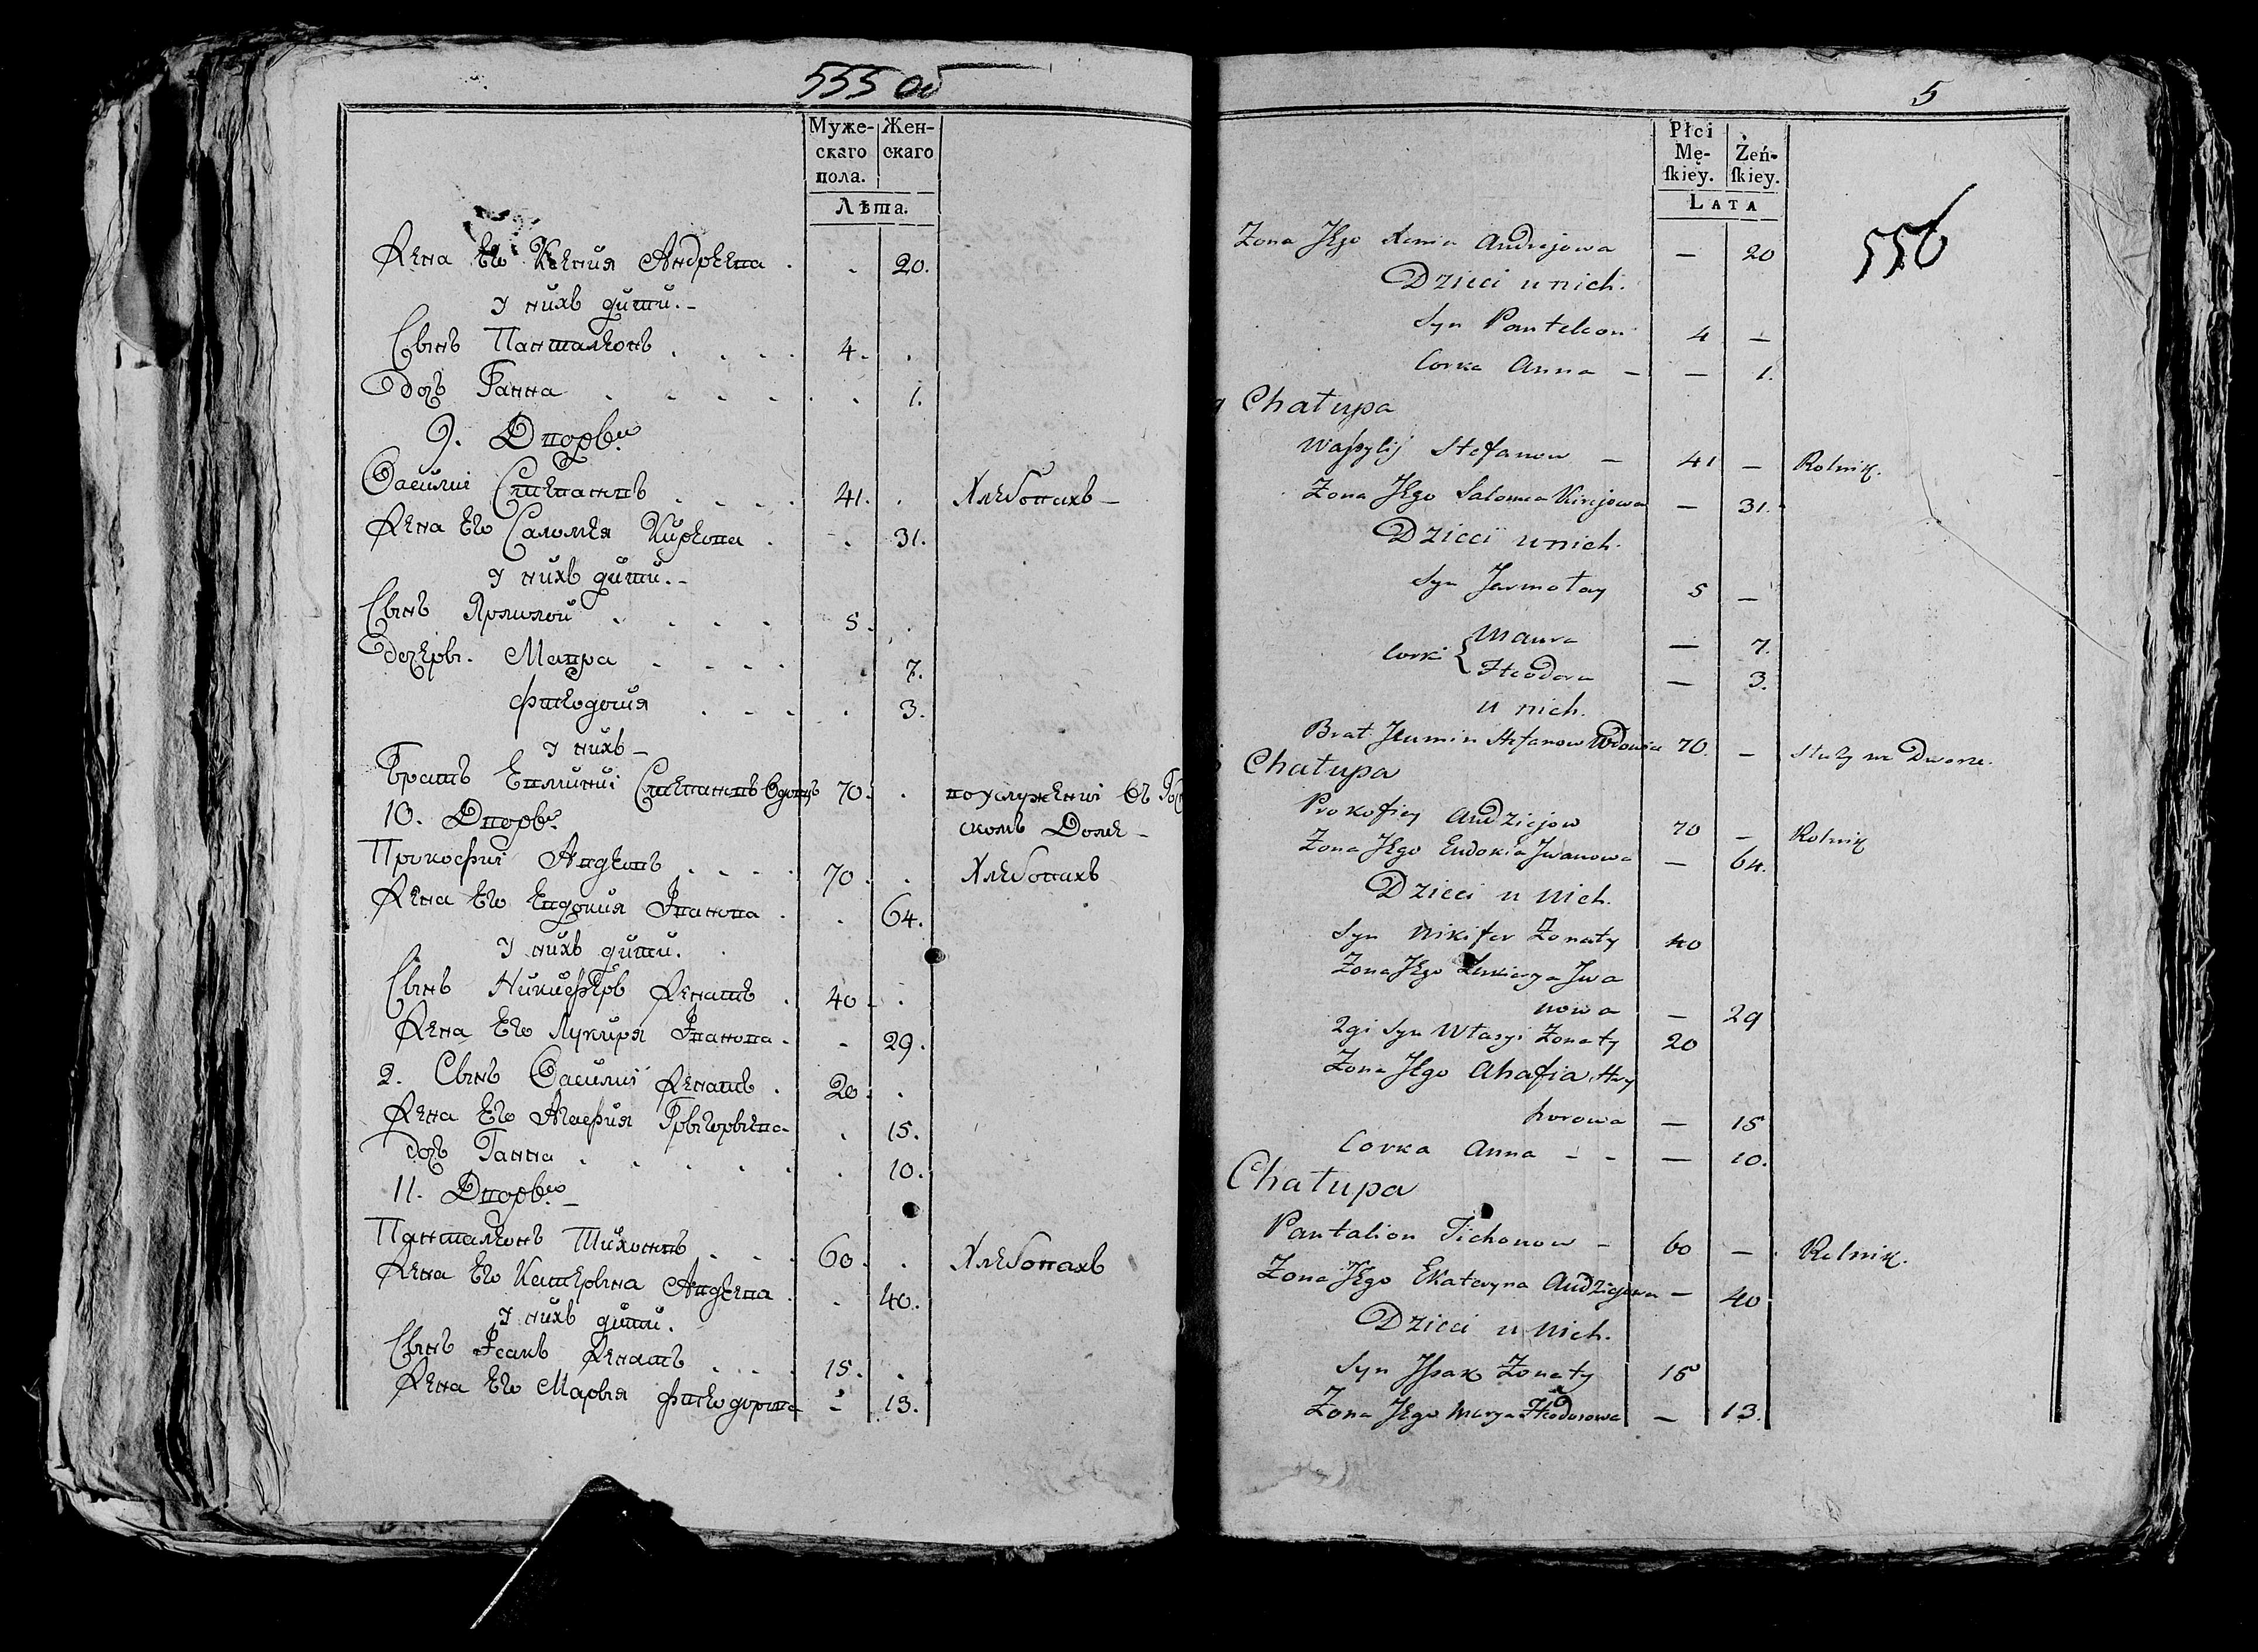 555 об
Муже-
скаго
пола.
Жен-
скаго
Лѣта.
Жена Его Ксения Андрѣева . . 20.
У нихъ дѣти.-
Сынъ Панталѣонъ . . . . 4. .
Дочь Ганна . . . . . . 1.
9. Дворъ
Василиі Степановъ . . . . 41. . Хлѣбопахъ -
Жена Его Саломѣя Кирѣова . . 31.
У нихъ дѣти.-
Сынъ Ярмолой . . . . 5. .
Дочери. Мавра . . . . . 7.
Фѣодосия . . . . 3.
У нихъ -
Братъ Евминиі Степановъ Вдовъ 70. . в услужениі въ Гос
скомъ Домѣ -
10. Дворъ.
Прокофиі Авдѣевъ . . . . 70. . Хлѣбопахъ
Жена Его Евдокия Иванова . . 64.
У нихъ дѣти.
Сынъ Никифѣръ Женатъ . 40. .
Жена Его Лукиря Иванова . - 29.
2. Сынъ Василиі Женатъ . 20. .
Жена Его Агафия Грыгорьева . 15.
дочь Ганна . . . . . . 10.
11. Дворъ. -
Панталѣонъ Тихоновъ . . . 60. . Хлѣбопахъ
Жена Его Катерына Авдѣева . . 40.
У нихъ дѣти.
Сынъ Исакъ Женатъ . . . . 15. .
Жена Его Марья Фѣодорова - 13.
5
Płci
Mę-
ſkiey.
Żeń-
ſkiey.
LATA
556
Zona Jego Xenia Andrejowa — 20
Dzieci u nich.
Syn Panteleon 4 —
Corka Anna - — 1.
9 Chałupa
Waſsylij Stefanow — 41 — Rolnik.
Zona Jego Salomea Kirejowa — 31.
Dzieci u nich.
Syn Jermołay 5 —
Corki { Maura — 7.
Fteodora — 3.
u nich.
Brat Jeumin Stefanow Wdowiec 70. — Służy we Dworze.
Chałupa
Prokofiey Audziejow 70 — Rolnik
Zona Jego Eudokia Jwanowa — 64.
Dzieci u nich.
Syn Nikifer Zonaty 40
Zona Jego Jwa
nowa — 29
2gi Syn Własyi Zonaty 20
Zona Jego Ahafia Hry
horowa — 15
Corka Anna - - — 10.
Chałupa
Pantalion Tichonow - 60 — Rolnik.
Zona Jego Ekateryna Audziejowa — 40
Dzieci u nich.
Syn Jſsak Zonaty 15
Zona Jego Marya Fteodorowa — 13.